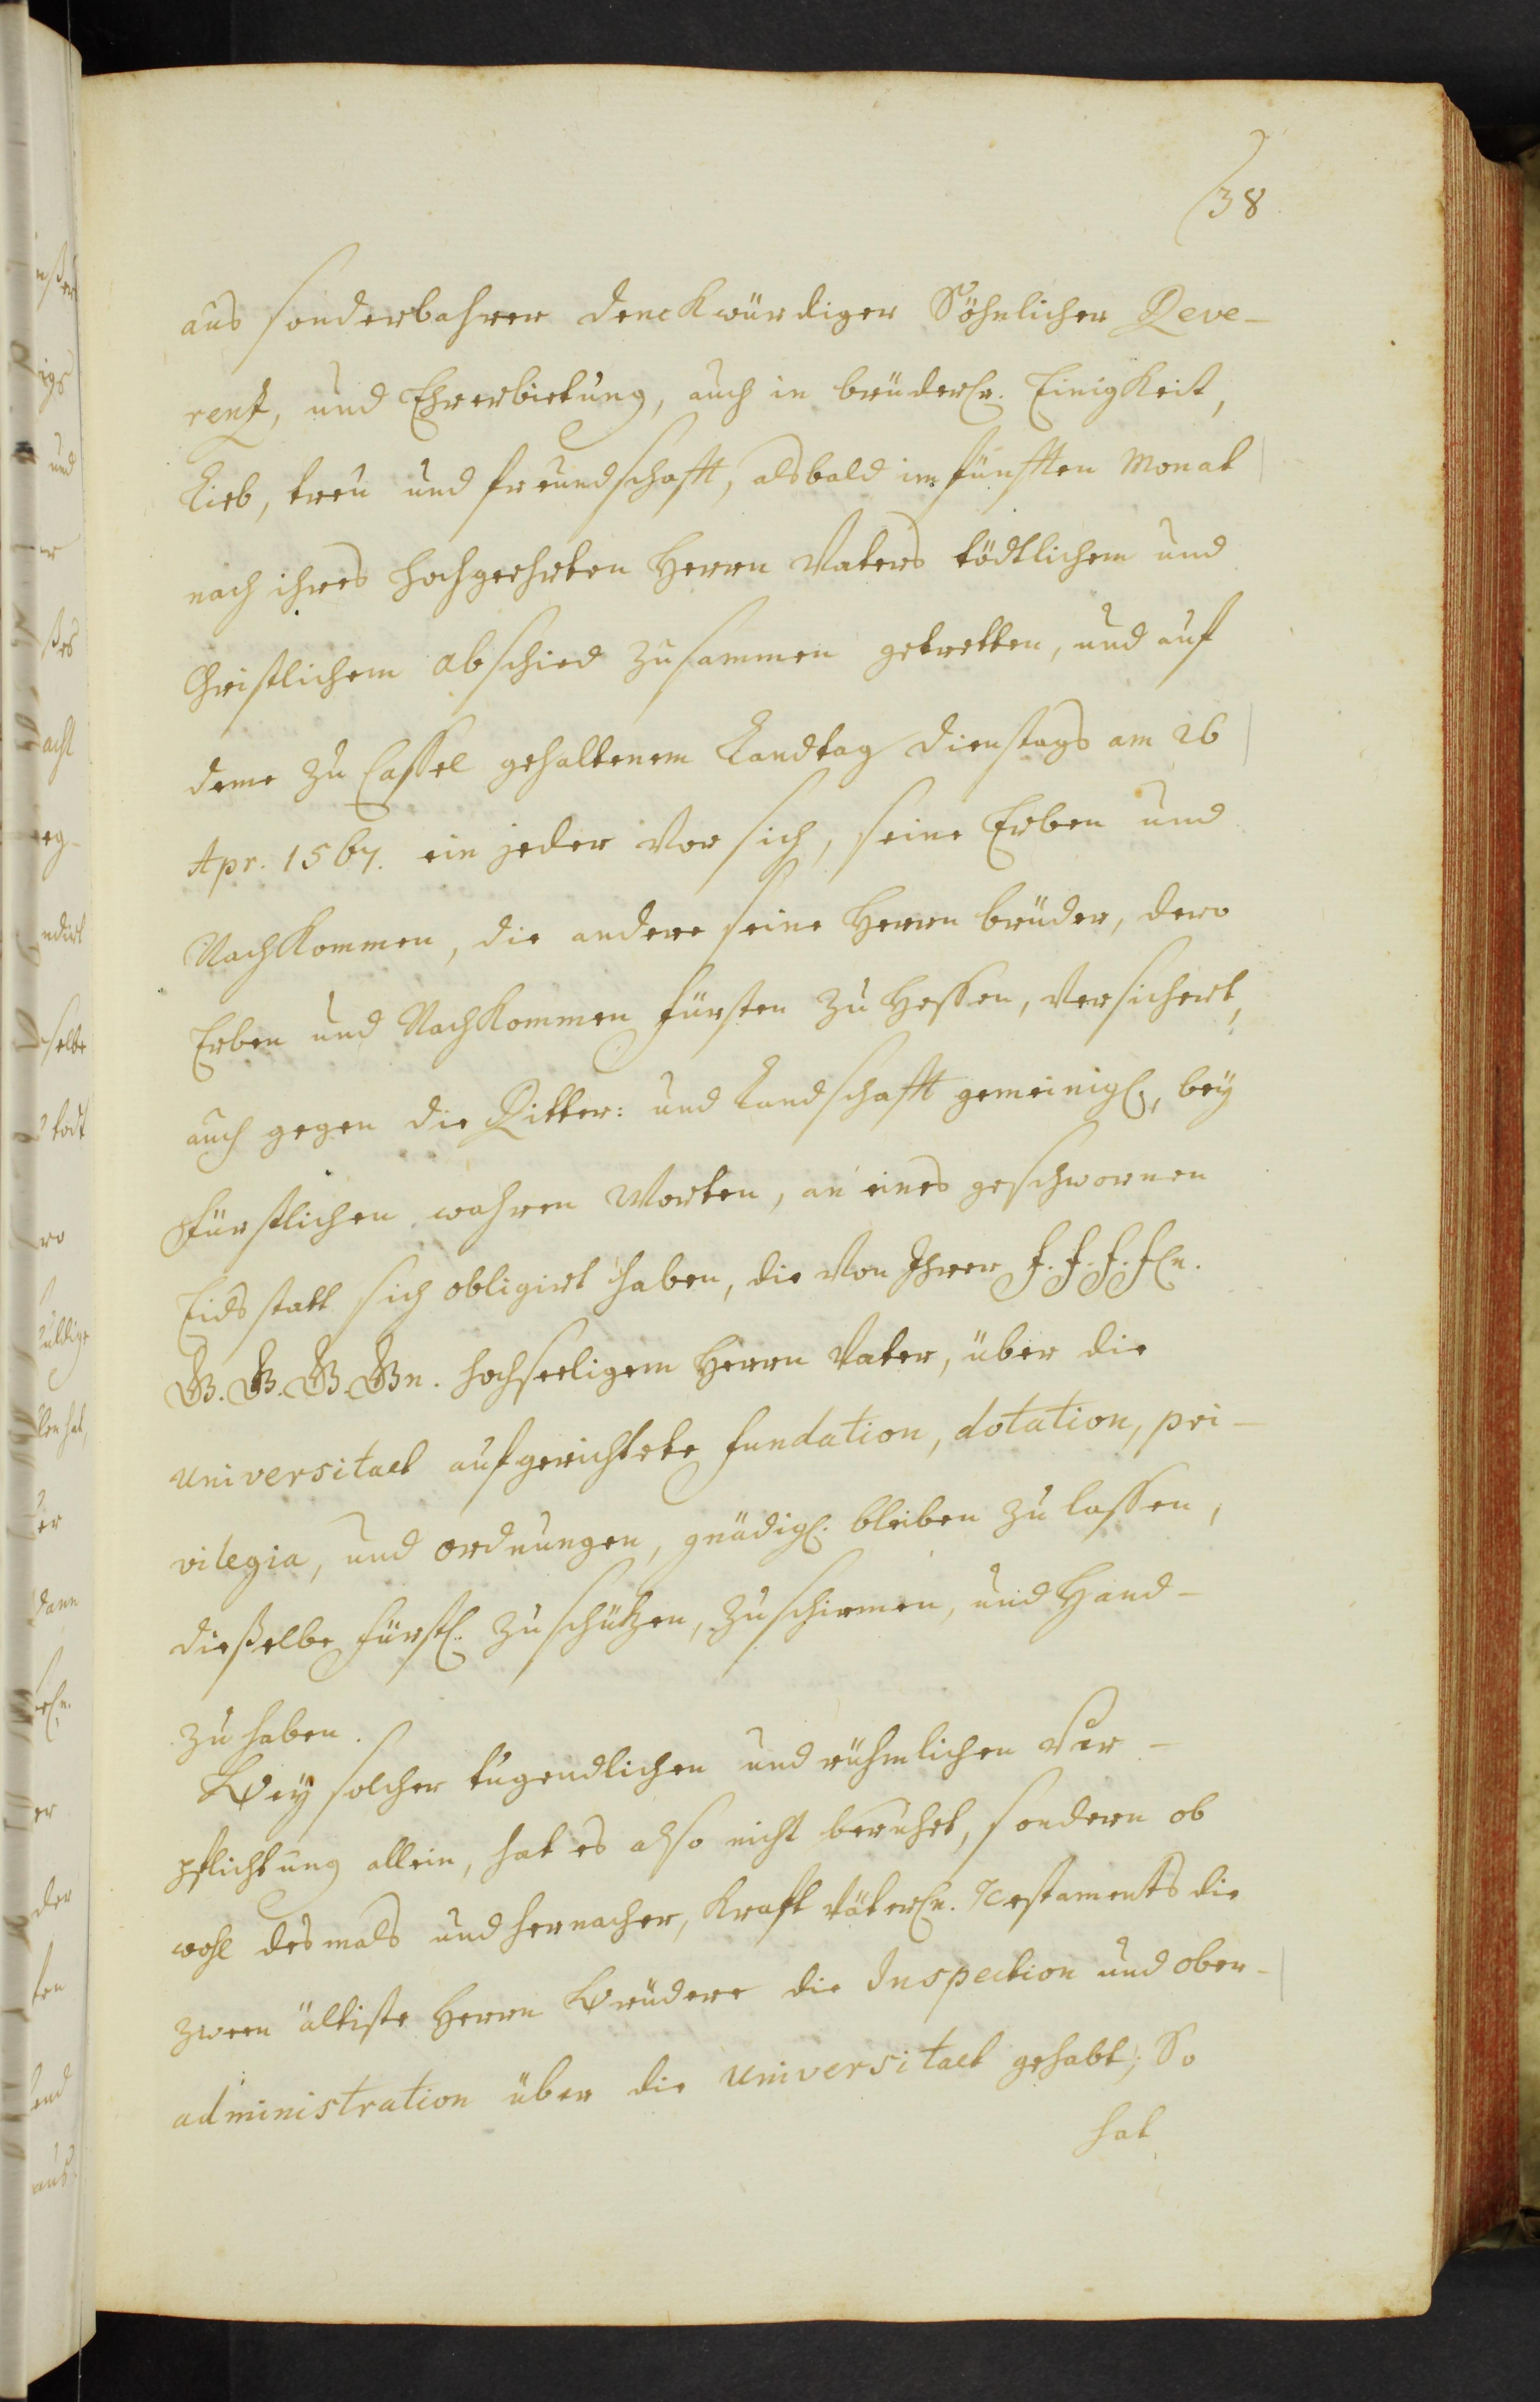 38
aus sonderbahrer denckwürdiger Söhnlicher Reve-
rentz, und Ehrerbietung, auch in brüderln. Einigkeit,
Lieb, treu und freundschafft, alsbald im fünfften Monat
nach ihres hochgeehrten Herrn Vaters tödtlichem und
Christlichem abschied zusammen getretten, und auf
deme zu Cassel gehaltenem Landtag dienstags am 26
Apr. 1567. ein jeder vor sich, seine Erben und
Nachkommen, die andere seine Herrn brüder, dero
Erben und Nachkommen fürsten zu Hessen, versichert,
auch gegen die Ritter: und Landschafft gemeinigl., bey
fürstlichen wahren Worten, an eines geschwornen
Eids statt sich obligirt haben, die von Ihrer f. f. f. fln.
G. G. G. Gn. hochseeligem Herrn Vater, über die
Universitaet aufgerichtete fundation, dotation, pri-
vilegia, und ordnungen, gnädigl. bleiben zu lassen,
dießelbe fürstl. zu schützen, zu schirmen, und Hand-
zu haben.
Bey solcher tugendlichen und rühmlichen Ver-
pflichtung allein, hat es also nicht beruhet, sondern ob
wohl desmals und hernacher, krafft väterln. Testaments die
zween ältiste Herrn Brüdere die Inspection und ober-
administration über die Universitaet gehabt; So
hat